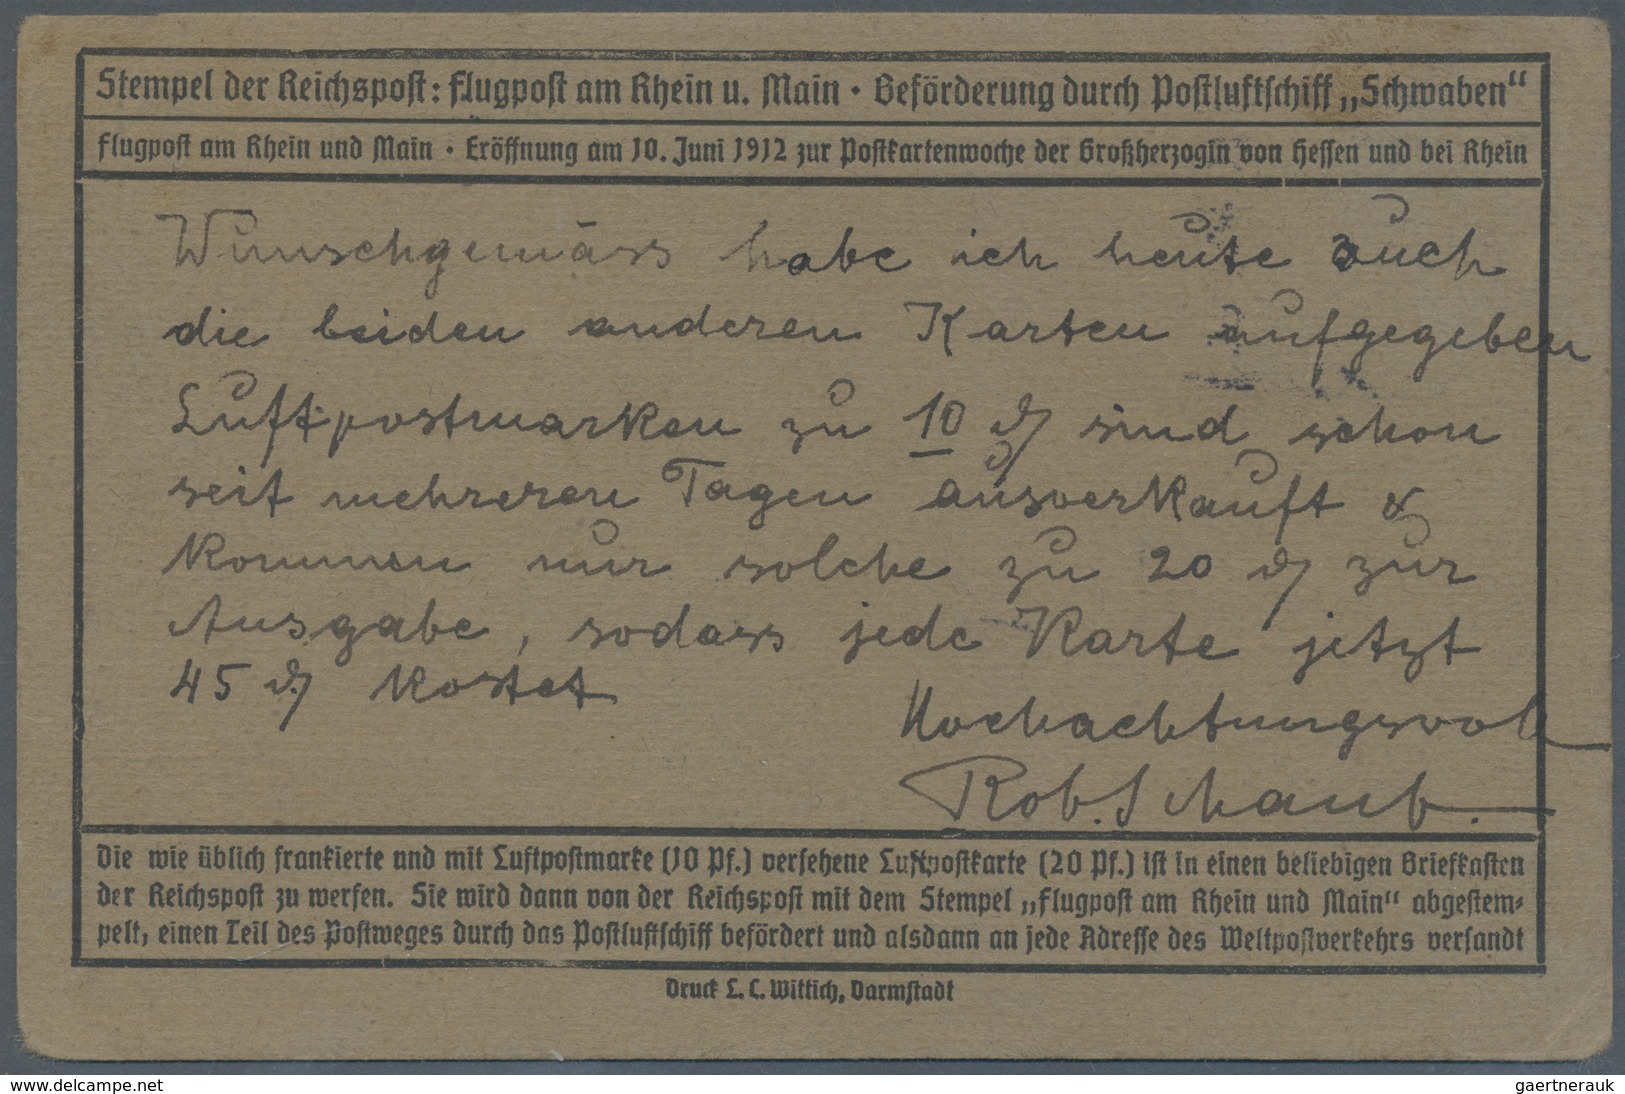 Stempel der Reichspost: Flugpost am Rhein u. Main • Beförderung durch Postluftschiff „Schwaben“
Flugpost am Rhein und Main • Eröffnung am 10. Juni 1912 zur Postkartenwoche der Großherzogin von Hessen und bei Rhein
Wunschgemäss habe ich heute auch
die beiden anderen Karten aufgegeben
Luftpostmarken zu 10 ₰ sind schon
seit mehreren Tagen ausverkauft &
kommen nur solche zu 20 ₰ zur
Ausgabe, sodass jede Karte jetzt
45 ₰ kostet
Hochachtungsvoll
Rob. Schaub.
Die wie üblich frankierte und mit Luftpostmarke (10 Pf.) versehene Luftpostkarte (20 Pf.) ist in einen beliebigen Briefkasten
der Reichspost zu werfen. Sie wird dann von der Reichspost mit dem Stempel „Flugpost am Rhein und Main“ abgestem-
pelt, einen Teil des Postweges durch das Postluftschiff befördert und alsdann an jede Adresse des Weltpostverkehrs versandt
Druck L. C. Wittich, Darmstadt
www.delcampe.net
gaertnerauk